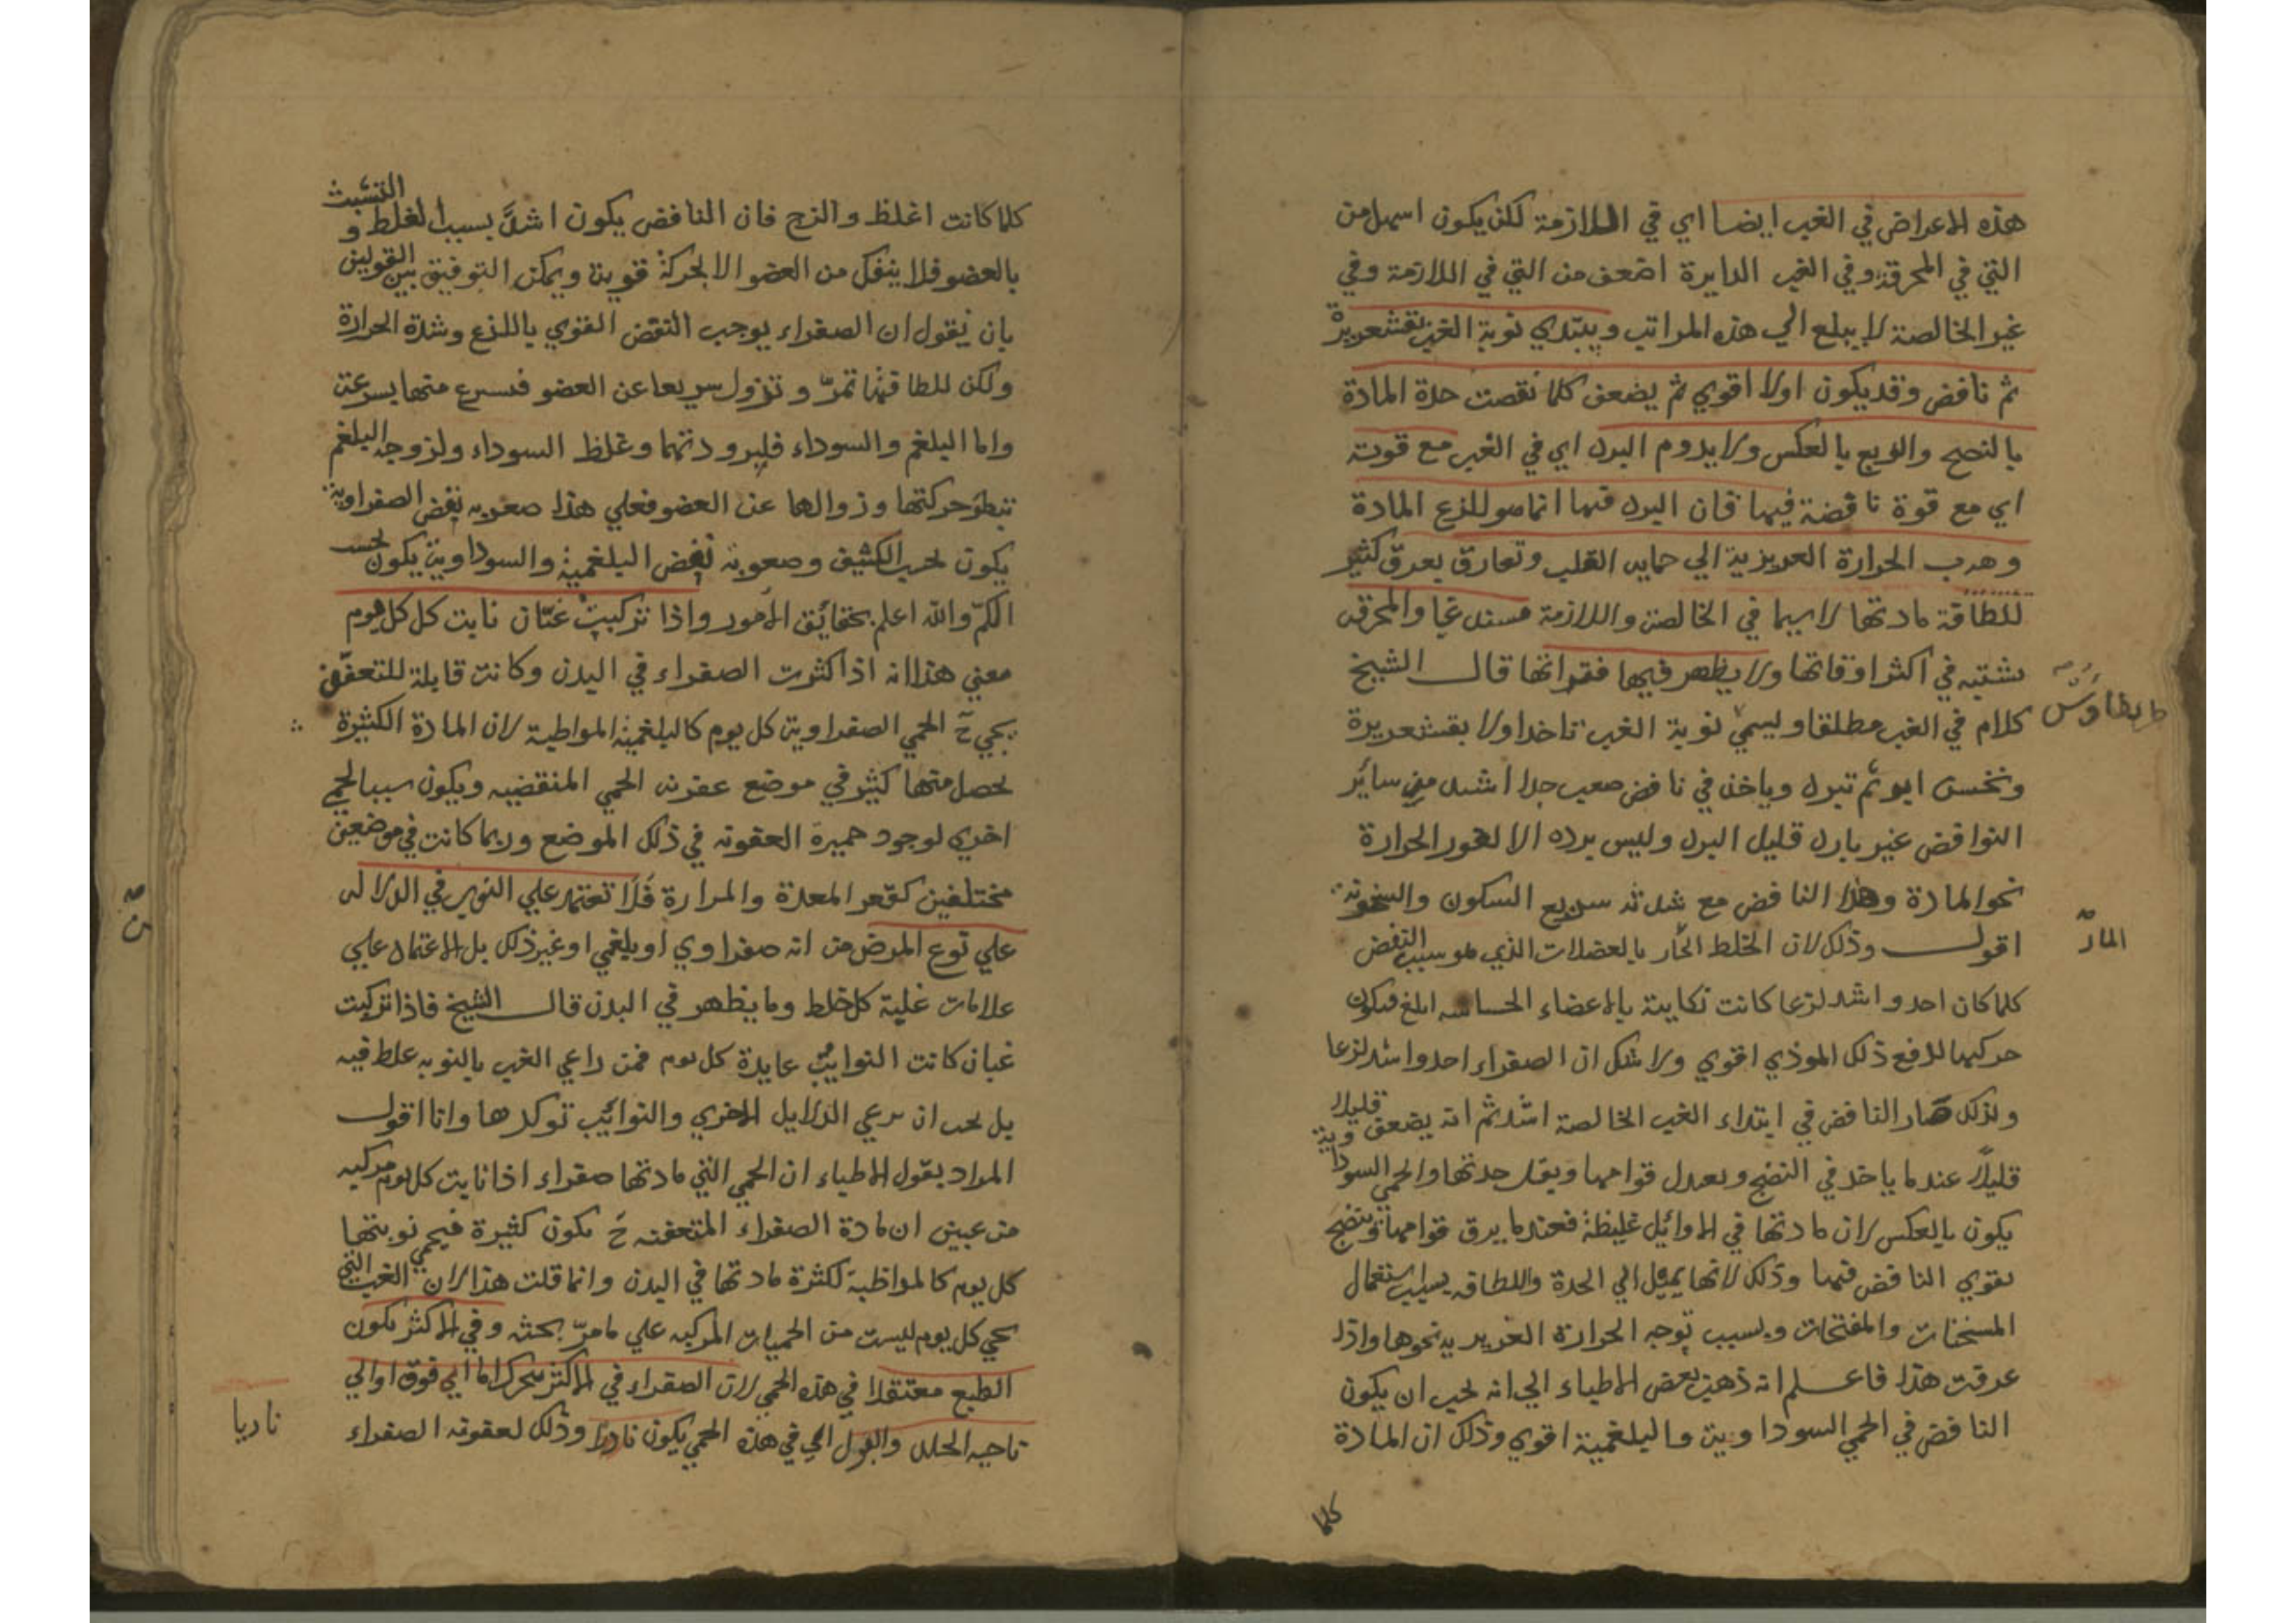 هذه الاعراض في الغب ايضا اي في اللازمة لكن يكون اسهل من
التي في المحرقة وفي الغب الدايرة اضعف من التي في اللازمة وفي
غير الخالصة لا يبلغ الي هذه المراتب ويبتدي نوبة الغب بقشعريرة
ثم نافض وقد يكون اولا اقوي ثم يضعف كلما نقصت حدة المادة
بالنضج والربع بالعكس ولا يدوم البرد اي في الغب مع قوته
اي مع قوة نافضة فيها فان البرد فيها انما هو للذع المادة
وهرب الحرارة الغريزية الي القلب وتفارق بعرق كثير
للطافة مادتها لا سيما في الخالصة واللازمة غبا والمحرقة
تشتد في اكثر اوقاتها ولا يظهر فيها فتراتها قال الشيخ
كلام في الغب مطلقا ويسمي نوبة الغب تاخذ اولا بقشعريرة
ونخس ثم تبرد وياخذ في نافض صعب جدا اشد من سائر
النوافض غير بارد قليل البرد وليس برده الا لغور الحرارة
نحو المادة وهذا النافض مع شدته سريع السكون والسخونة
اقول وذلك لان الخلط الحار بالعضلات الذي هو سبب النفض
كلما كان احد واشد لذعا كانت نكايته بالاعضاء الحساسة ابلغ فيكون
حركتها لدفع ذلك الموذي اقوي ولا شك ان الصفراء احد واشد لذعا
ولذلك صار النافض في ابتداء الغب الخالصة اشد ثم انه يضعف قليلا
قليلا عندما ياخذ في النضج ويعدل قوامها ويقل حدتها والحمي السوداوية
يكون بالعكس لان مادتها في الاوائل غليظة فعندما يرق قوامها وينضج
يقوي النافض فيها وذلك لانها يميل الي الحدة واللطافة بسبب استعمال
المسخنات والمفتحات وبسبب توجه الحرارة الغريزية نحوها واذا
عرفت هذا فاعلم انه ذهب بعض الاطباء الي انه يجب ان يكون
النافض في الحمي السوداوية والبلغمية اقوي وذلك ان المادة
كلما
المار
كلما كانت اغلظ والزج فان النافض يكون اشد بسبب الغلظ و التشبث
بالعضو فلا ينفك من العضو الا بحركة قوية ويمكن التوفيق بين القولين
بان نقول ان الصفراء يوجب النفض القوي باللذع وشدة الحرارة
ولكن للطافتها تمر وتزول سريعا عن العضو منها بسرعة
واما البلغم والسوداء فلبرودتهما وغلظ السوداء ولزوجة البلغم
تبطؤ حركتها وزوالها عن العضو فعلي هذا صعوبة نفض الصفراوية
يكون بحسب الكيف وصعوبة نفض البلغمية والسوداوية يكون بحسب
الكم والله اعلم بحقائق الامور واذا تركبت غبان نابت كل يوم
معني هذا انه اذا كثرت الصفراء في البدن وكانت قابلة للتعفن
يجي ح الحمي الصفراوية كل يوم كالبلغمية المواظبة لان المادة الكثيرة
يحصل منها كثير في موضع عفونة الحمي المنقضية ويكون سببا لحمي
اخري لوجود خميرة العفونة في ذلك الموضع وربما كانت في موضعين
مختلفين كقعر المعدة والمرارة فلا تعتمد علي النوب في الدلالة
علي نوع المرض من انه صفراوي او بلغمي او غير ذلك بل الاعتماد علي
علامات غلبة كل خلط وما يظهر في البدن قال الشيخ فاذا تركبت
غبان كانت النوائب عايدة كل يوم فمن راعي الغب بالنوبة غلط فيه
بل يجب ان يرعي الدلايل الاخري والنوائب توكدها وانا اقول
المراد بقول الاطباء ان الحمي التي مادتها صفراء اذا نابت كل يوم مركبة
من غبين ان مادة الصفراء المتعفنة ح يكون كثيرة فيحمي نوبتها
كل يوم كالمواظبة لكثرة مادتها في البدن وانما قلت هذا لان الغب التي
يجي كل يوم ليست من الحميات المركبة علي ما مر بحثه وفي الاكثر يكون
الطبع معتقلا في هذه الحمي لان الصفراء في الاكثر اما الي فوق او الي
ناحية الجلد والبول اي في هذه الحمي يكون ناريا وذلك لعفونة الصفراء
ناريا